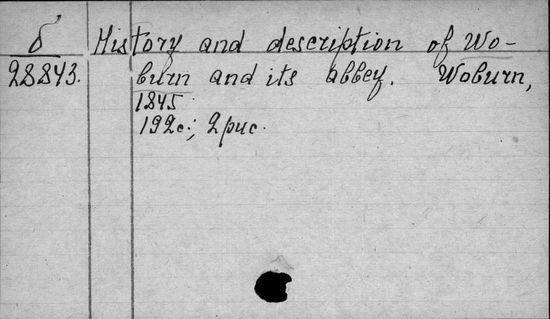 б History and description of Wo-
28843. burn and its abbey. Woburn,
1845
192c.; 2 рис.